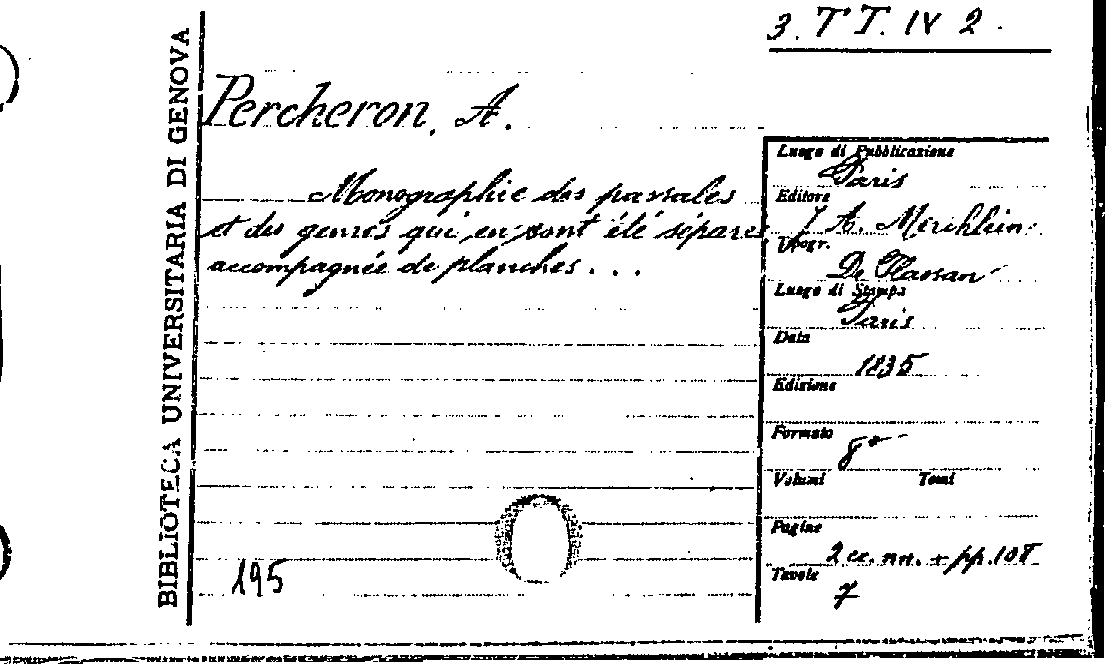 3. TT. IV 2.
BIBLIOTECA UNIVERSITARIA DI GENOVA
Percheron, A.
Monographie des passales
et des genres qui en sont été séparés
accompagnée de planches...
195
Luogo di Pubblicazione
Paris
Editore
J. A. Merchlein
Tipogr.
De Plassan
Luogo di Stampa
Paris
Data
1835
Edizione
Formato
8°
Volumi Tomi
Pagine
2 cc. nn. + pp. 108
Tavole
7